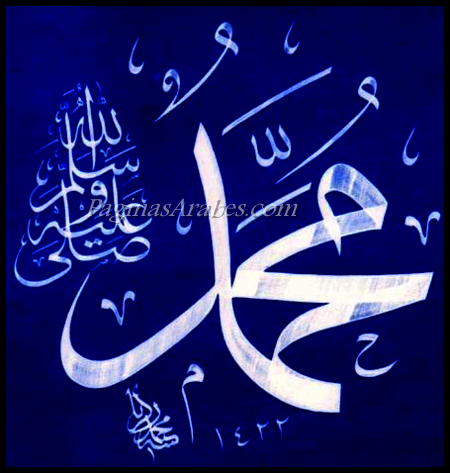 محمد
صلى الله عليه وسلم
PaginasArabes.com
١٤٢٢